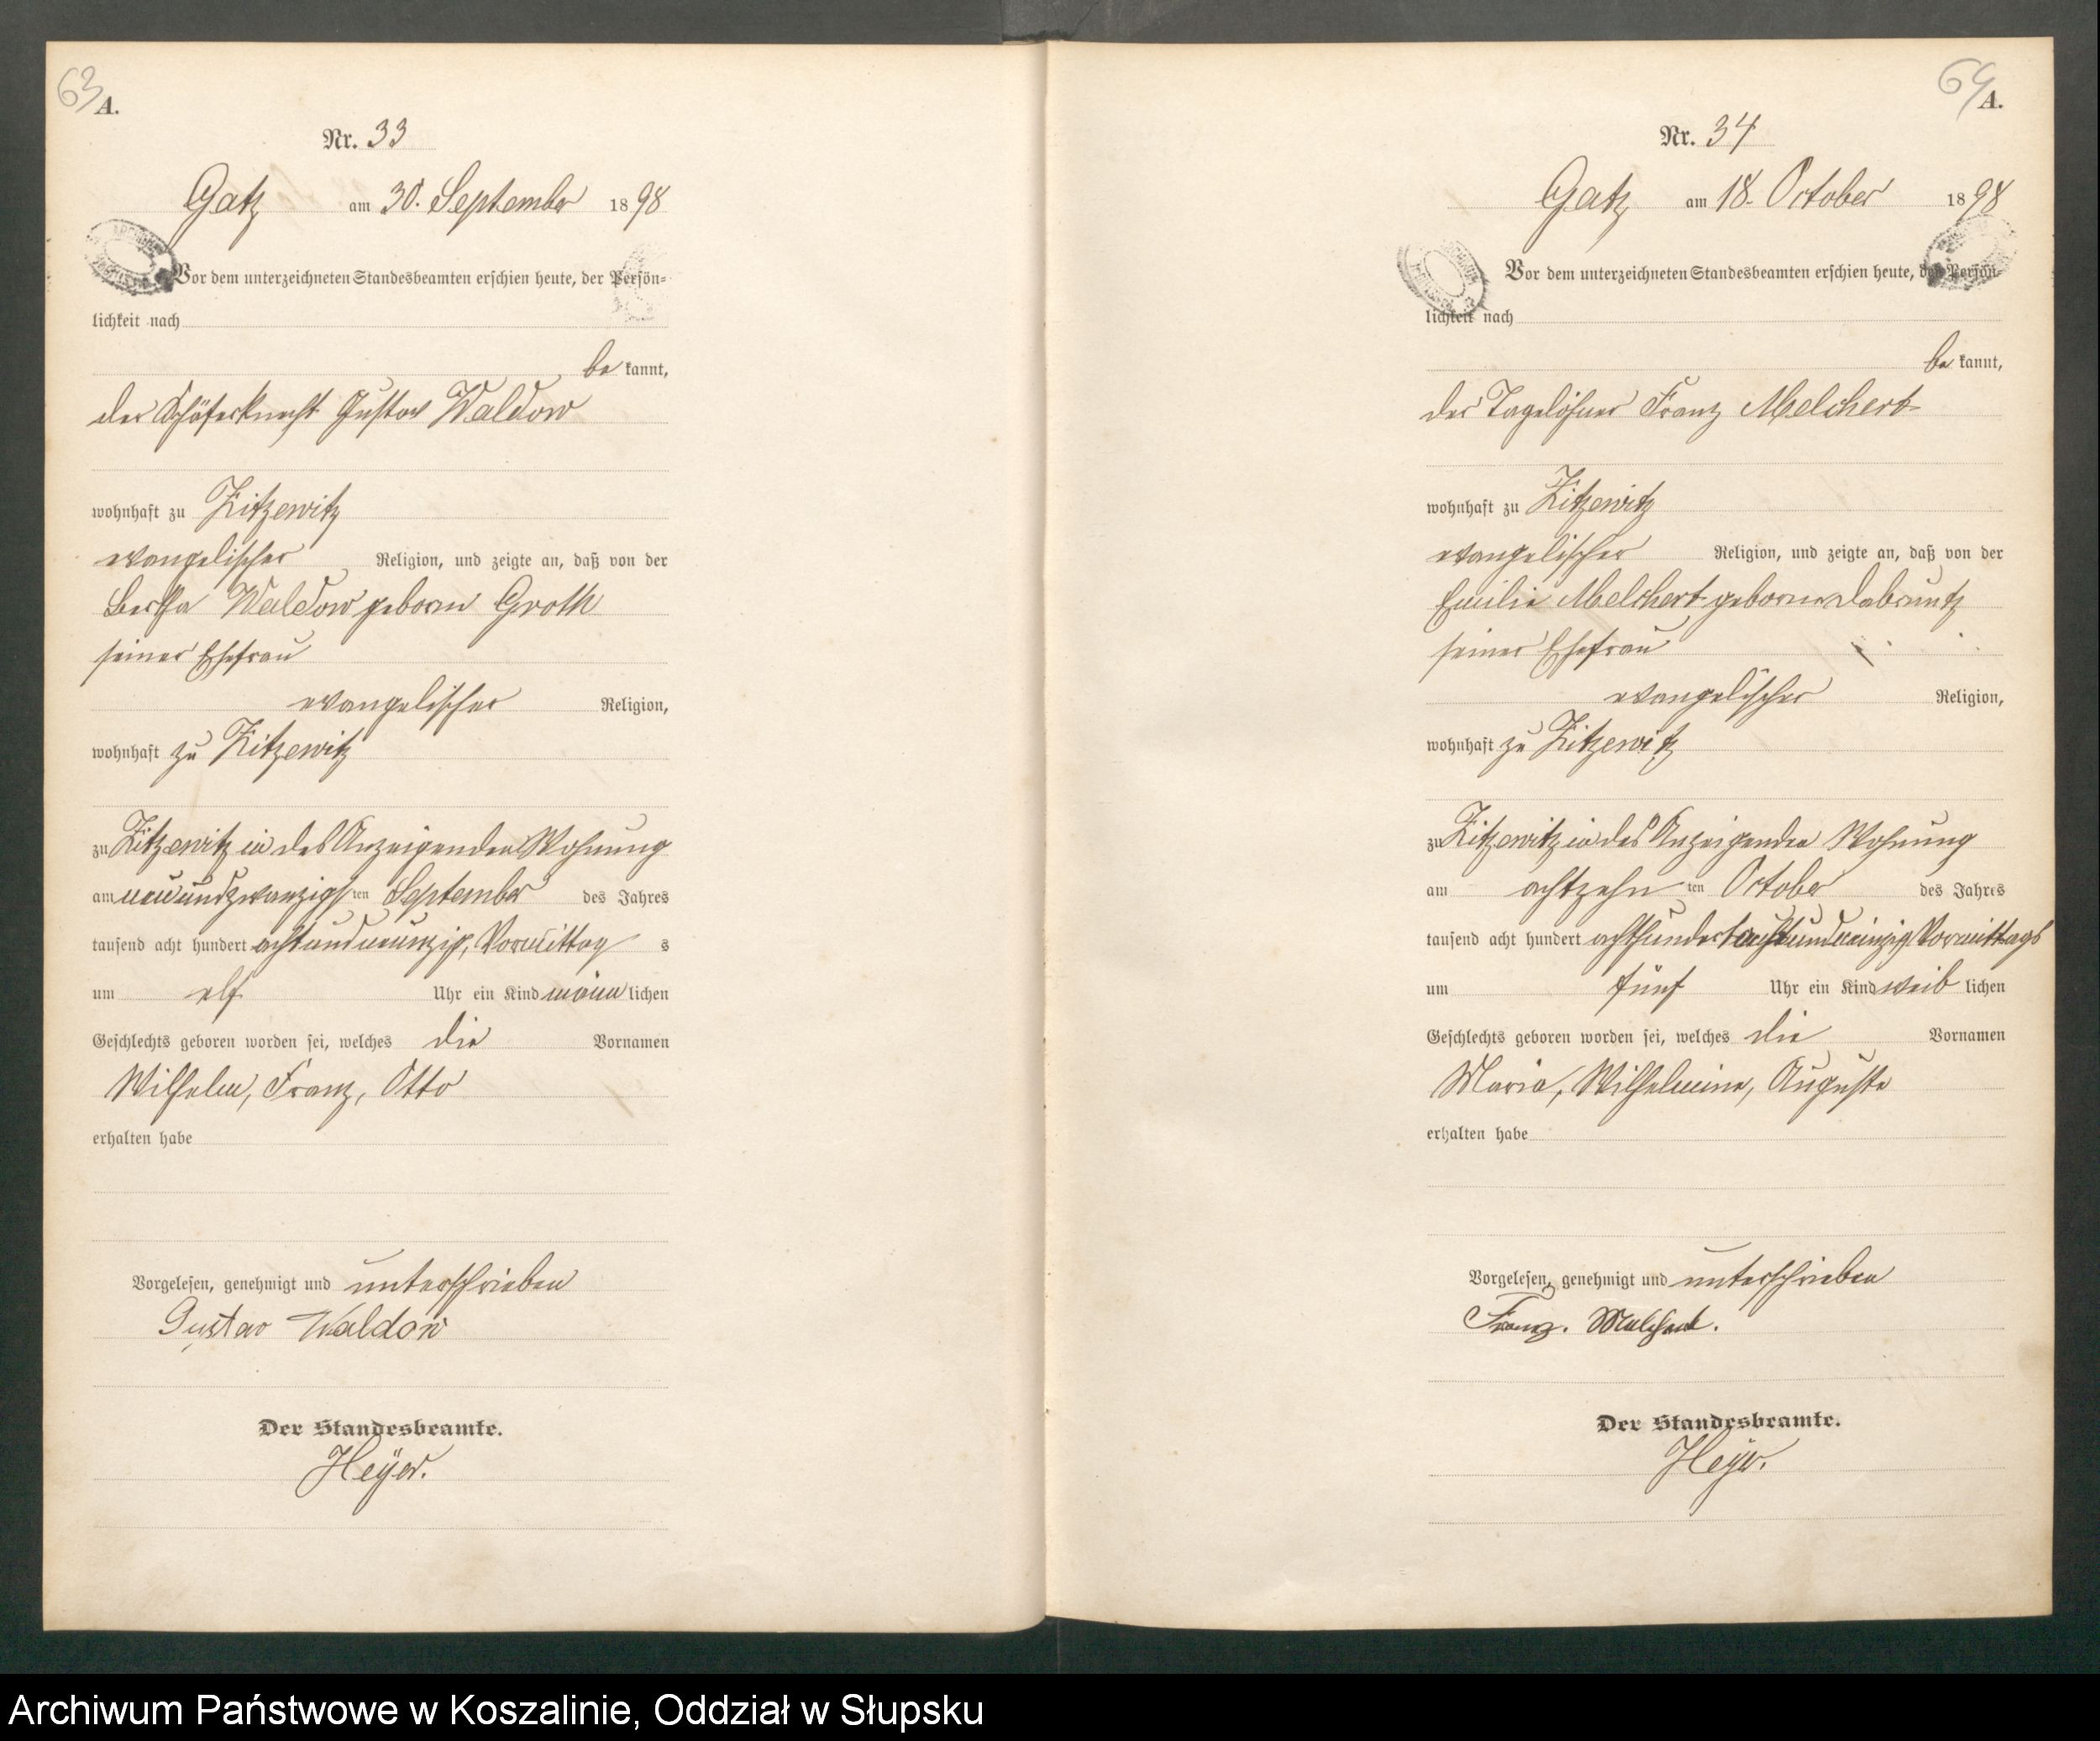 63
A.
Nr. 33
Gatz am 30. September 1898
Vor dem unterzeichneten Standesbeamten erschien heute, der Persön-
lichkeit nach
be kannt,
der Schäferknecht Gustav Waldow
wohnhaft zu Zitzewitz
evangelischer Religion, und zeigte an, daß von der
Bertha Waldow geboren Groth
seiner Ehefrau
evangelischer Religion,
wohnhaft zu Zitzewitz
zu Zitzewitz in des Anzeigenden Wohnung
am neunundzwanzigsten September des Jahres
tausend acht hundert achtundneunzig, Vormittag s
um elf Uhr ein Kind männlichen
Geschlechts geboren worden sei, welches die Vornamen
Wilhelm, Franz, Otto
erhalten habe
Vorgelesen, genehmigt und unterschrieben
Gustav Waldow
Der Standesbeamte.
Heyer.
64
A.
Nr. 34
Gatz am 18. October 1898
Vor dem unterzeichneten Standesbeamten erschien heute, der Persön-
lichkeit nach
be kannt,
der Tagelöhner Franz Melchert
wohnhaft zu Zitzewitz
evangelischer Religion, und zeigte an, daß von der
Emilie Melchert geboren
seiner Ehefrau
evangelischer Religion,
wohnhaft zu Zitzewitz
zu Zitzewitz in des Anzeigenden Wohnung
am achtzehn ten October des Jahres
tausend acht hundert achthundertachtundneunzig Vormittags
um fünf Uhr ein Kind weib lichen
Geschlechts geboren worden sei, welches die Vornamen
Maria, Wilhelmine, Auguste
erhalten habe
Vorgelesen, genehmigt und unterschrieben
Franz. Melchert.
Der Standesbeamte.
Heyer.
Archiwum Państwowe w Koszalinie, Oddział w Słupsku